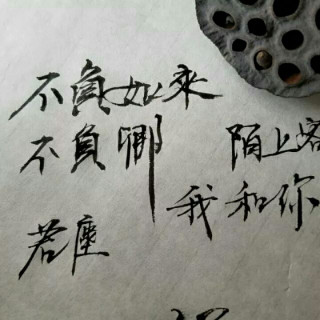 不負如來
不負卿
陌上客
我和你
若座